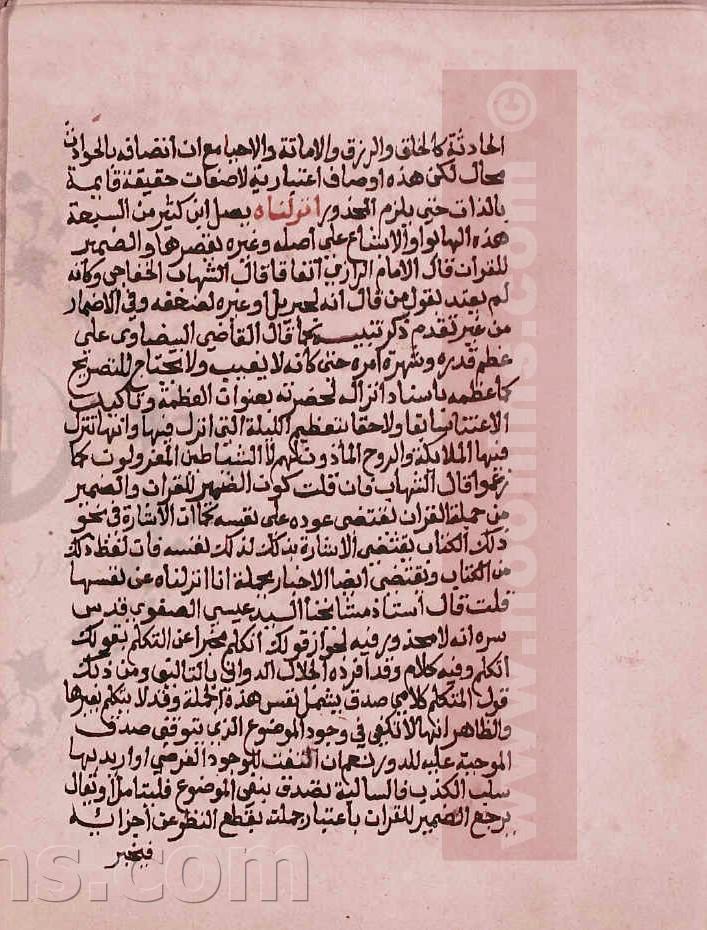 الحادثة كالخلق والرزق والاماتة والاحيا مع ان اتصافه بالحوادث
محال لكن هذه اوصاف اعتبارية لا صفات حقيقة قايمة
بالذات حتى يلزم المحذور انزلناه يصل ابن كثير من السبعة
هذه الها بواو الاشباع على اصله وغيره يقصرها والضمير
للقران قال الامام الرازي اتفاقا قال الشهاب الخفاجي وكأنه
لم يعتد بقول من قال انه لجبريل او غيره لضعفه وفي الاضمار
من غير تقدم ذكر تنبيه كما قال القاضي البيضاوى على
عظم قدره وشهرة امره حتى كأنه لا يغيب ولا يحتاج للتصريح
كما عظمه باسناد انزاله لحضرته بعنوان العظمة وتأكيد
الاعتنا سابقا ولاحقا بتعظيم الليلة التي انزل فيها وانها تنزل
فيها الملايكة والروح المأذون لهم لا الشياطين المعزولون كما
زعموا قال الشهاب فان قلت كون الضمير للقران والضمير
من جملة القران يقتضى عوده على نفسه كما ان الاشارة في نحو
ذلك الكتاب يقتضى الاشارة بذلك لذلك نفسه فان لفظ ذلك
من الكتاب ويقتضى ايضا الاخبار بجملة انا انزلناه عن نفسها
قلت قال أستاذ مشايخنا السيد عيسى الصفوى قدس
سره انه لا محذور فيه لجواز قولك اتكلم مخبرا عن التكلم بقولك
اتكلم وفيه كلام وقد افرده الجلال الدواني بالتاليف ومن ذلك
قول المتكلم كلامي صدق يشمل نفس هذه الجملة وقد لا يتكلم بغيرها
والظاهر انها لا تكفى في وجود الموضوع الذي تتوقف صدق
الموجبة عليه للدور نعم ان التفت للوجود الفرضي او اريد بها
سلب الكذب فالسالبة تصدق بنفى الموضوع فليتامل او يقال
يرجع الضمير للقران باعتبار جملته بقطع النظر عن أجزائه
فيخبر
www.noormms.com ©
ns.com